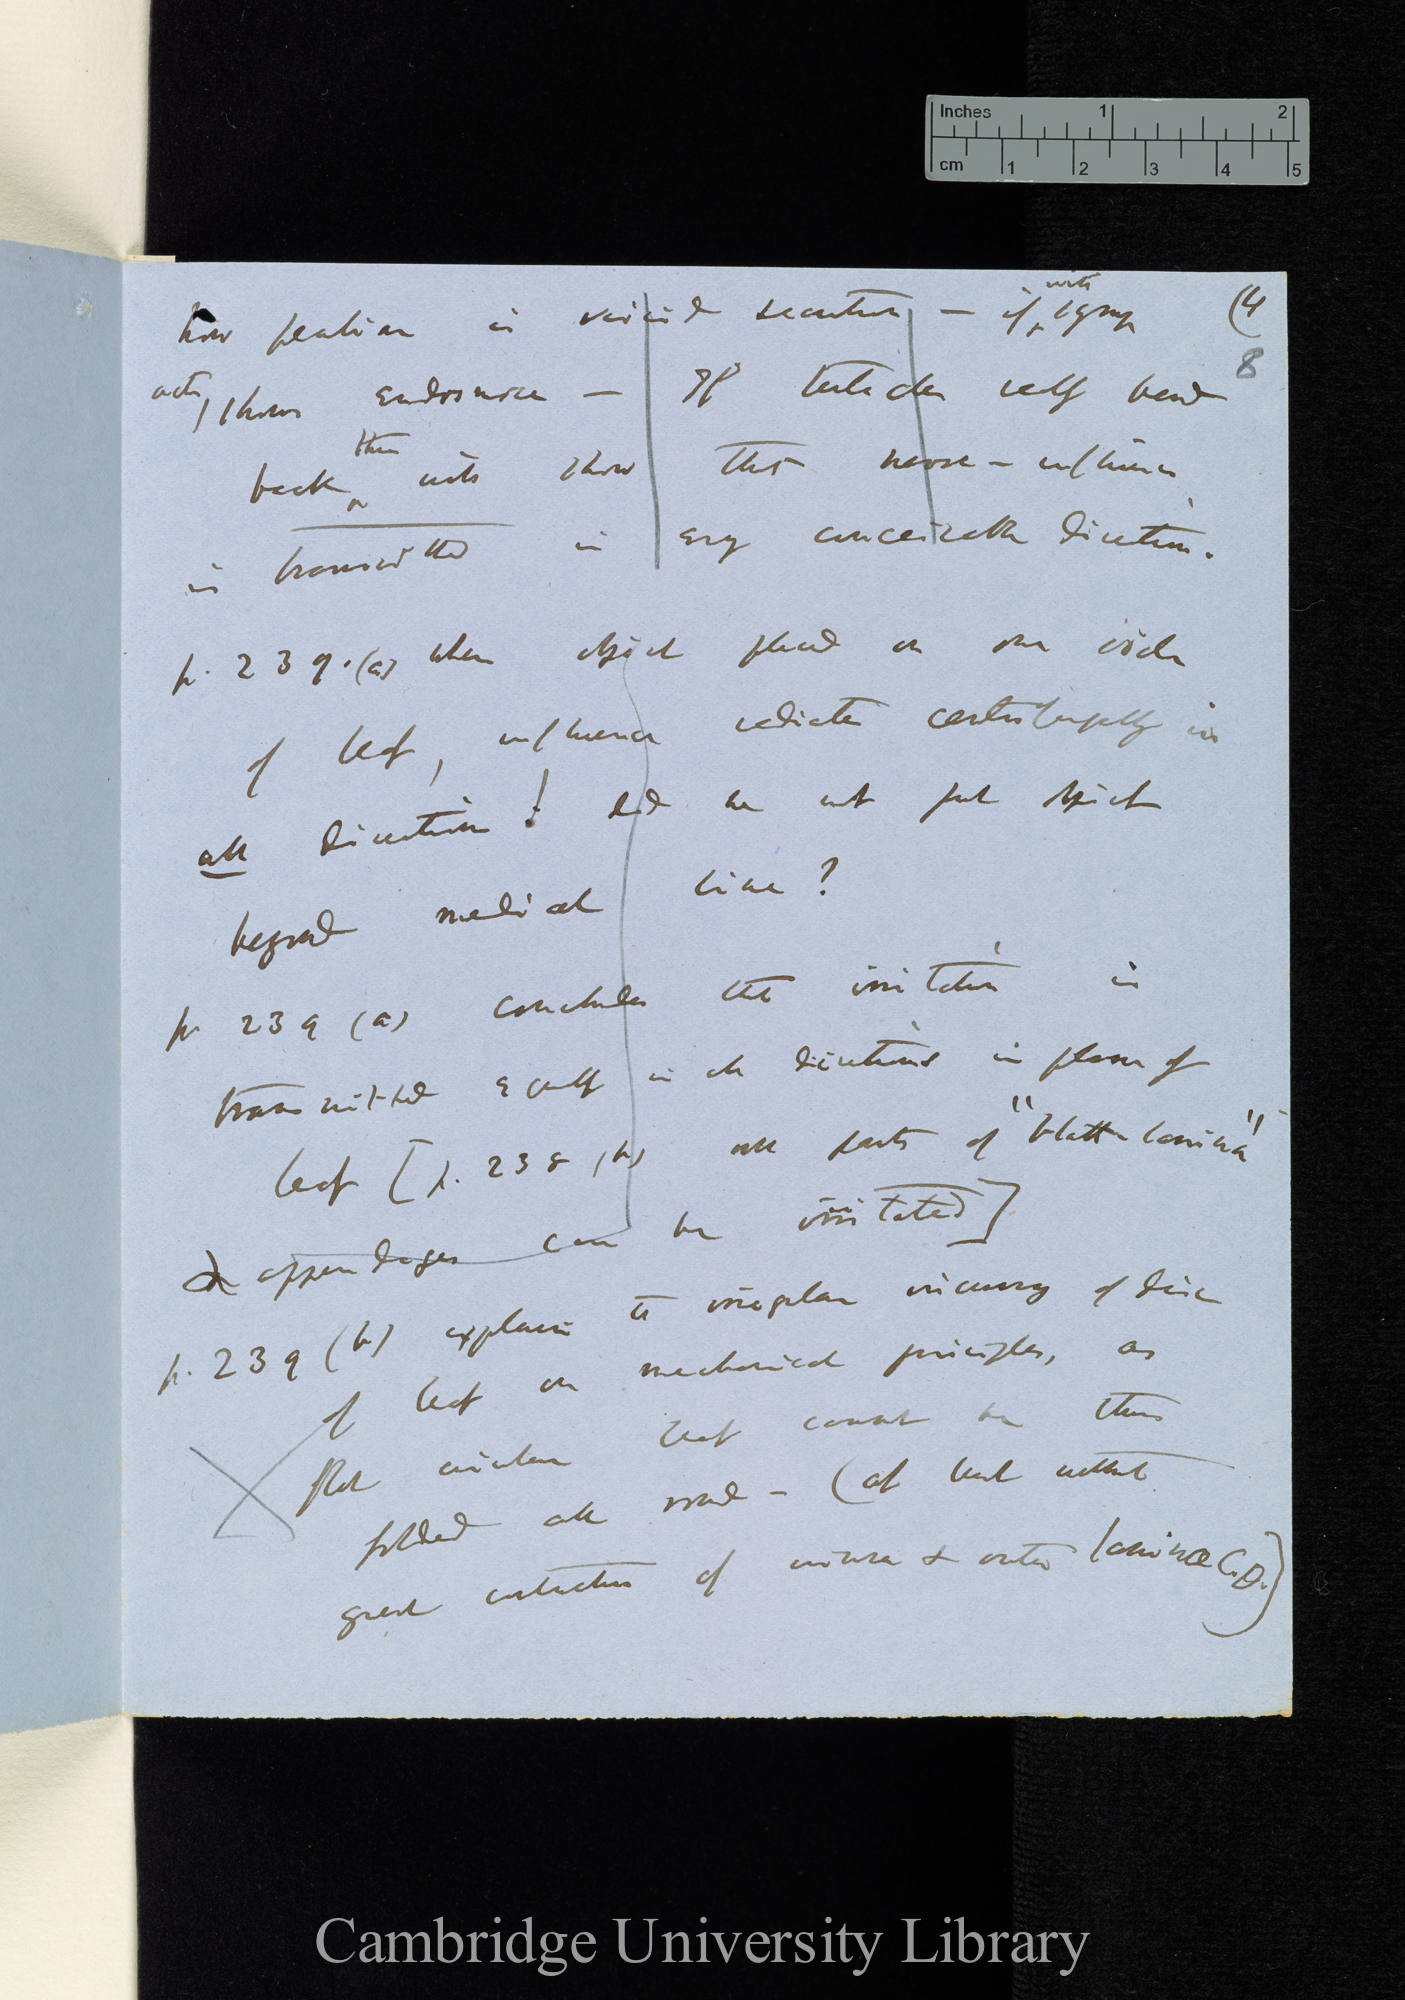 Inches 1 2
cm 1 2 3 4 5
(4
8
how gelatine in viscid secretion — if with syrup
acts, shows endosmose — If tentacles really bend
back then
is transmitted in every conceivable direction.
p. 239. (a) when object placed on one side
of leaf, influence radiates centrifugally in
all directions! did he not put object
beyond medial line?
p 239 (a) concludes that irritation is
transmitted equally in all directions in plane of
leaf [p. 238 (b) all parts of "blatt lamina"
& appendages can be irritated]
p. 239 (b) explains the irregular incurving of disc
of leaf on mechanical principles, as
flat circular leaf cannot be thus
folded all round — (at least without
great contraction of inner & outer laminæ C.D.)
Cambridge University Library